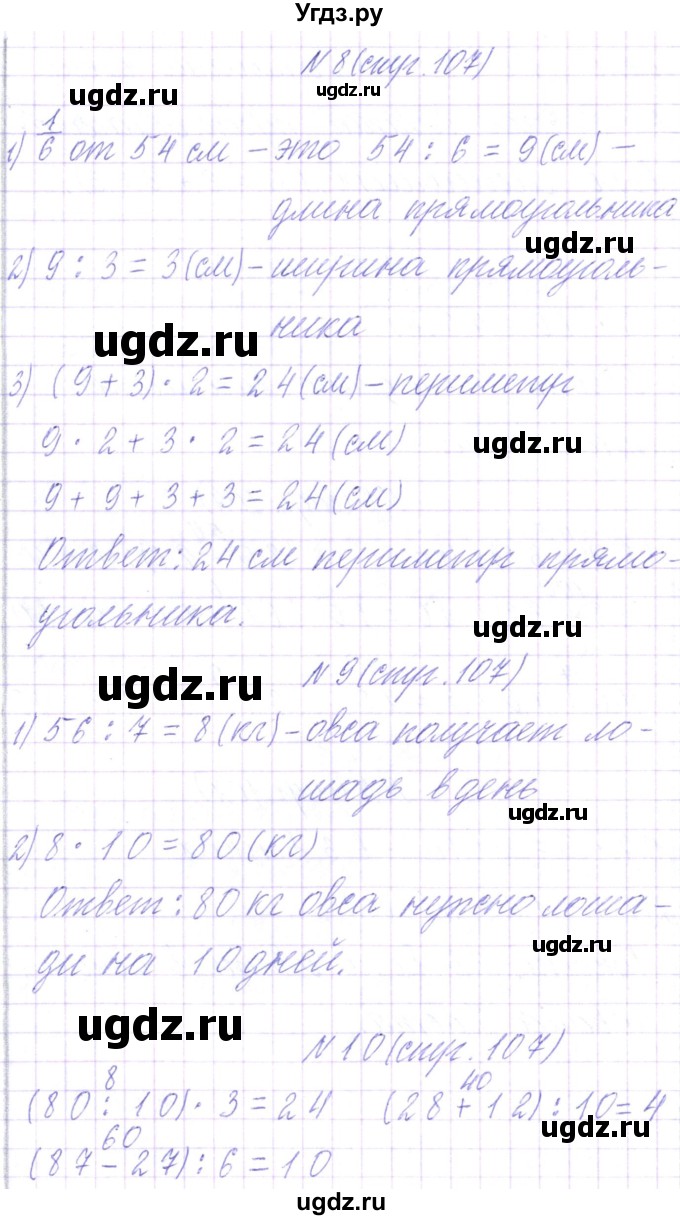 Угдз.ру
N 8 (стр. 107)
ugdz.ru
ugdz.ru
1) 1/6 от 54 см – это 54 : 6 = 9 (см) –
длина прямоугольника
ugdz.ru
2) 9 : 3 = 3 (см) – ширина прямоуголь-
ника
ugdz.ru
3) (9 + 3) · 2 = 24 (см) – периметр
9 · 2 + 3 · 2 = 24 (см)
ugdz.ru
9 + 9 + 3 + 3 = 24 (см)
Ответ: 24 см периметр прямо-
угольника.
ugdz.ru
N 9 (стр. 107)
ugdz.ru
1) 56 : 7 = 8 (кг) – овса получает ло-
шадь в день
ugdz.ru
2) 8 · 10 = 80 (кг)
Ответ: 80 кг овса нужно лоша-
ugdz.ru
ди на 10 дней.
ugdz.ru
N 10 (стр. 107)
8 40
(80 : 10) · 3 = 24 (28 + 12) : 10 = 4
ugdz.ru
60
(87 – 27) : 6 = 10
ugdz.ru